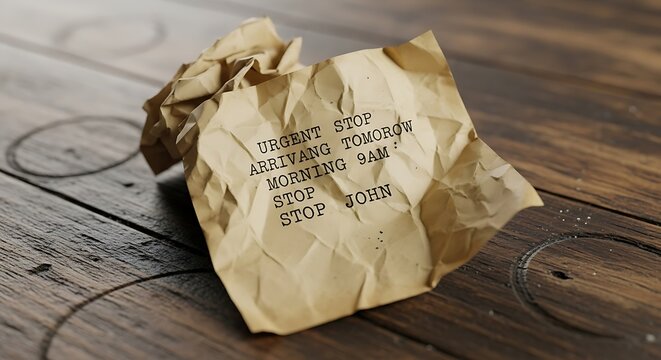 URGENT STOP
ARRIVANG TOMOROW
MORNING 9AM:
STOP
STOP JOHN